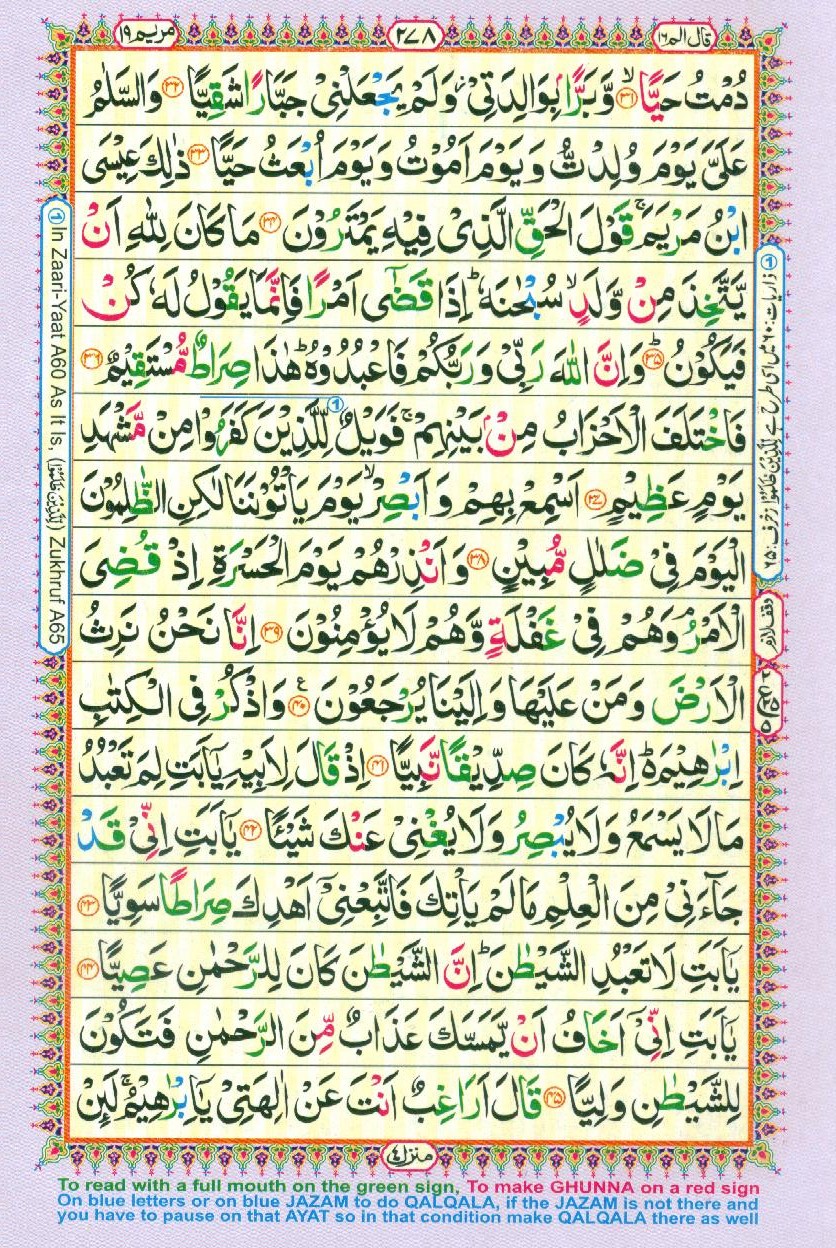 قال الم ١٦
٢٧٨
مريم ١٩
دُمْتُ حَيًّا ۙ﴿٣١﴾ وَّبَرًّاۢ بِوَالِدَتِیْ ؗ وَلَمْ یَجْعَلْنِیْ جَبَّارًا شَقِیًّا ﴿٣٢﴾ وَالسَّلٰمُ
عَلَیَّ یَوْمَ وُلِدْتُّ وَیَوْمَ اَمُوْتُ وَیَوْمَ اُبْعَثُ حَیًّا ﴿٣٣﴾ ذٰلِكَ عِیْسَی
ابْنُ مَرْیَمَ ۚ قَوْلَ الْحَقِّ الَّذِیْ فِیْهِ یَمْتَرُوْنَ ﴿٣٤﴾ مَا كَانَ لِلّٰهِ اَنْ
یَّتَّخِذَ مِنْ وَّلَدٍ ۙ سُبْحٰنَهٗ ؕ اِذَا قَضٰۤی اَمْرًا فَاِنَّمَا یَقُوْلُ لَهٗ كُنْ
فَیَكُوْنُ ؕ﴿٣٥﴾ وَاِنَّ اللّٰهَ رَبِّیْ وَرَبُّكُمْ فَاعْبُدُوْهُ ؕ هٰذَا صِرَاطٌ مُّسْتَقِیْمٌ ﴿٣٦﴾
فَاخْتَلَفَ الْاَحْزَابُ مِنْۢ بَیْنِهِمْ ۚ فَوَیْلٌ لِّلَّذِیْنَ كَفَرُوْا مِنْ مَّشْهَدِ
یَوْمٍ عَظِیْمٍ ﴿٣٧﴾ اَسْمِعْ بِهِمْ وَاَبْصِرْ ۙ یَوْمَ یَاْتُوْنَنَا لٰكِنِ الظّٰلِمُوْنَ
الْیَوْمَ فِیْ ضَلٰلٍ مُّبِیْنٍ ﴿٣٨﴾ وَاَنْذِرْهُمْ یَوْمَ الْحَسْرَةِ اِذْ قُضِیَ
الْاَمْرُ ۘ وَهُمْ فِیْ غَفْلَةٍ وَّهُمْ لَا یُؤْمِنُوْنَ ﴿٣٩﴾ اِنَّا نَحْنُ نَرِثُ
الْاَرْضَ وَمَنْ عَلَیْهَا وَاِلَیْنَا یُرْجَعُوْنَ ﴿٤٠﴾ وَاذْكُرْ فِی الْكِتٰبِ
اِبْرٰهِیْمَ ؕ۬ اِنَّهٗ كَانَ صِدِّیْقًا نَّبِیًّا ﴿٤١﴾ اِذْ قَالَ لِاَبِیْهِ یٰۤاَبَتِ لِمَ تَعْبُدُ
مَا لَا یَسْمَعُ وَلَا یُبْصِرُ وَلَا یُغْنِیْ عَنْكَ شَیْـًٔا ﴿٤٢﴾ یٰۤاَبَتِ اِنِّیْ قَدْ
جَآءَنِیْ مِنَ الْعِلْمِ مَا لَمْ یَاْتِكَ فَاتَّبِعْنِیْۤ اَهْدِكَ صِرَاطًا سَوِیًّا ﴿٤٣﴾
یٰۤاَبَتِ لَا تَعْبُدِ الشَّیْطٰنَ ؕ اِنَّ الشَّیْطٰنَ كَانَ لِلرَّحْمٰنِ عَصِیًّا ﴿٤٤﴾
یٰۤاَبَتِ اِنِّیْۤ اَخَافُ اَنْ یَّمَسَّكَ عَذَابٌ مِّنَ الرَّحْمٰنِ فَتَكُوْنَ
لِلشَّیْطٰنِ وَلِیًّا ﴿٤٥﴾ قَالَ اَرَاغِبٌ اَنْتَ عَنْ اٰلِهَتِیْ یٰۤاِبْرٰهِیْمُ ۚ لَئِنْ
منزل ٤
① ذاریات: ٦٠ میں اسی طرح ہے لِّلَّذِیْنَ ظَلَمُوْا زخرف: ٦٥
وقف لازم
① In Zaari-Yaat A60 As It Is, (لِّلَّذِیْنَ ظَلَمُوْا) Zukhruf A65
To read with a full mouth on the green sign, To make GHUNNA on a red sign
On blue letters or on blue JAZAM to do QALQALA, if the JAZAM is not there and
you have to pause on that AYAT so in that condition make QALQALA there as well